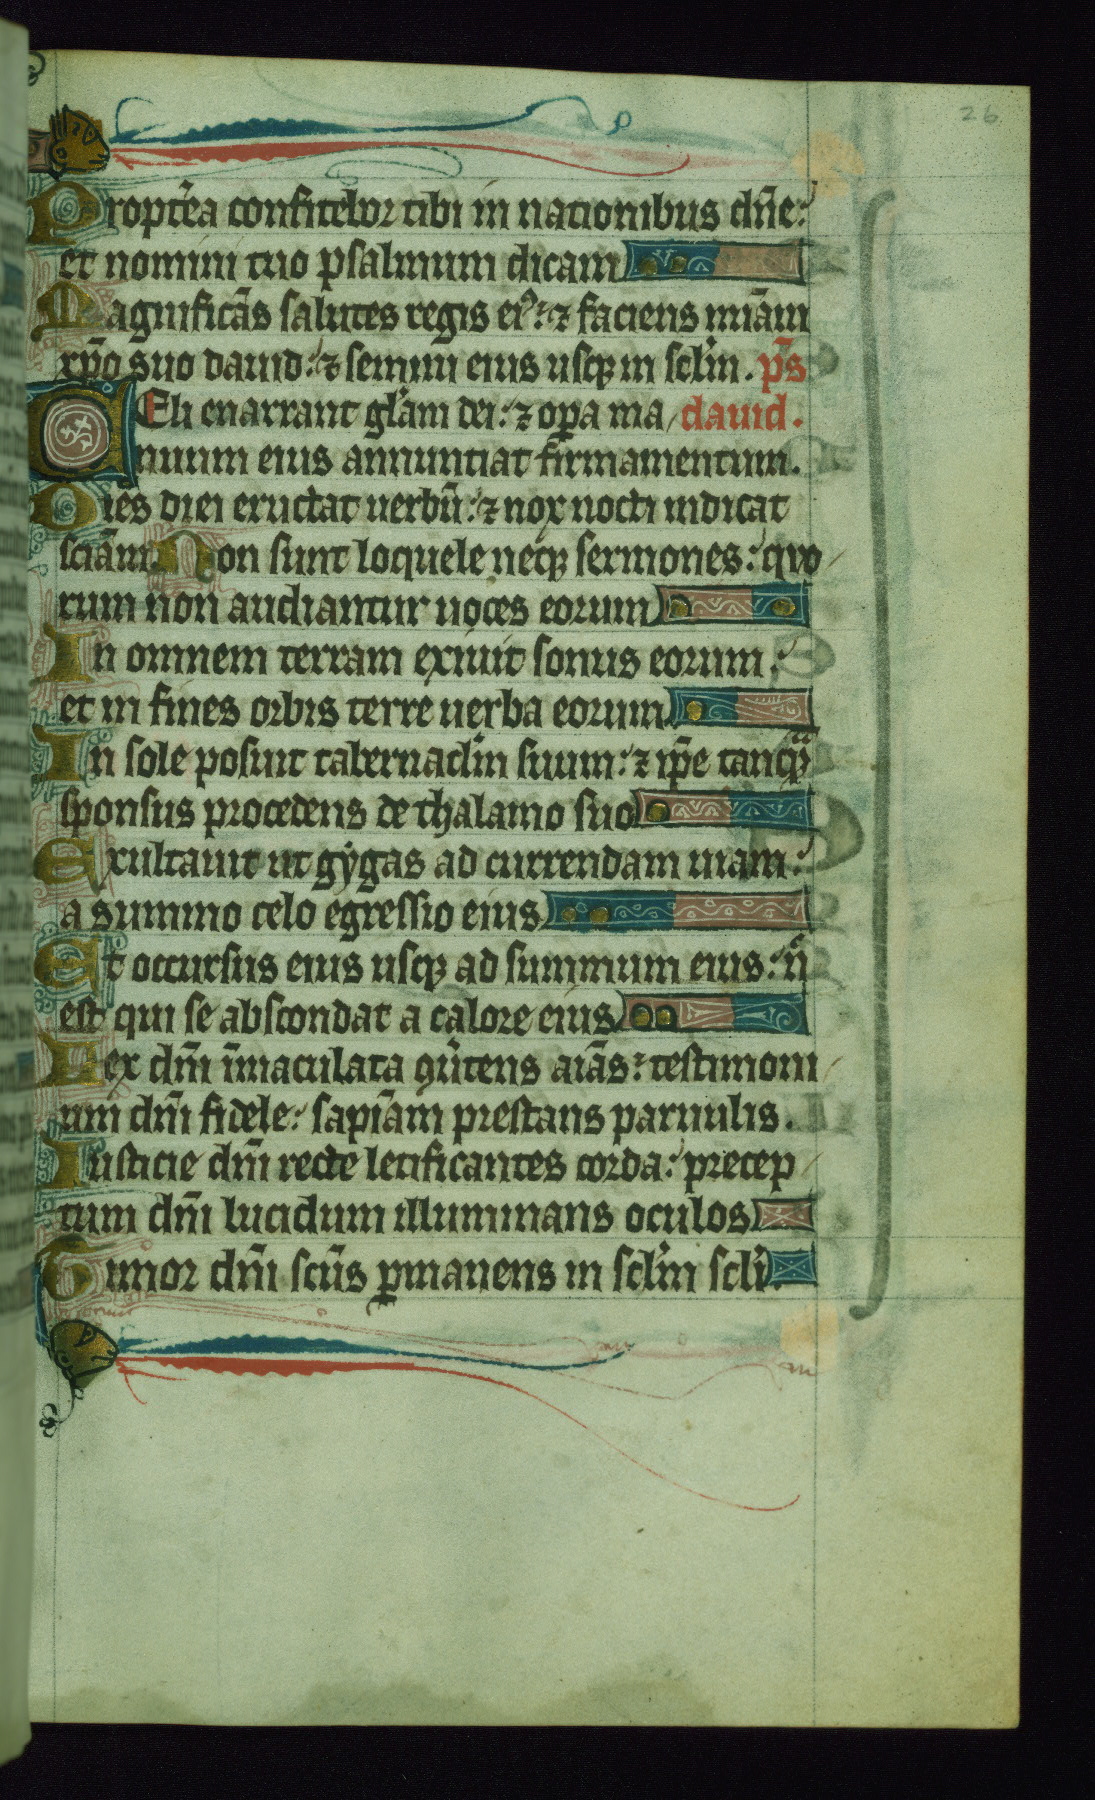 26
Propt̄ea confitebor tibi in nationibus dn̄e:
et nomini tuo psalmum dicam
Magnificās salutes regis ei⁹: ⁊ faciens miā̄m
xp̄o suo dauid: ⁊ semini eius usqꝫ in sclm̄. ps̄
Celi enarrant glām dei: ⁊ oꝑa ma dauid.
nuum eius annuntiat firmamentum.
Dies diei eructat uerbū: ⁊ nox nocti indicat
sciām. Non sunt loquele neqꝫ sermones: quo
rum non audiantur uoces eorum
In omnem terram exiuit sonus eorum:
et in fines orbis terre uerba eorum
In sole posuit tabernaclm̄ suum: ⁊ ip̄e tanqꝫ
sponsus procedens de thalamo suo
Exultauit ut gygas ad currendam uiam:
a summo celo egressio eius
Et occursus eius usqꝫ ad summum eius: n̄
est qui se abscondat a calore eius
Lex dn̄i īmaculata ꝯūtens aiās: testimoni
um dn̄i fidele: sapīam prestans paruulis.
Iusticie dn̄i recte letificantes corda: precep
tum dn̄i lucidum illuminans oculos
Timor dn̄i scūs ꝑmanens in sclm̄ scli.